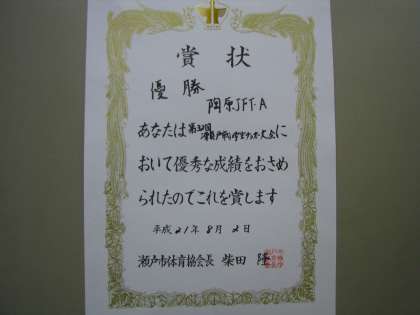 賞状
優勝
陶原JFT.A
あなたは第32回瀬戸市小学生サッカー大会に
おいて優秀な成績をおさめ
られたのでこれを賞します
平成21年8月2日
瀬戸市体育協会長 柴田